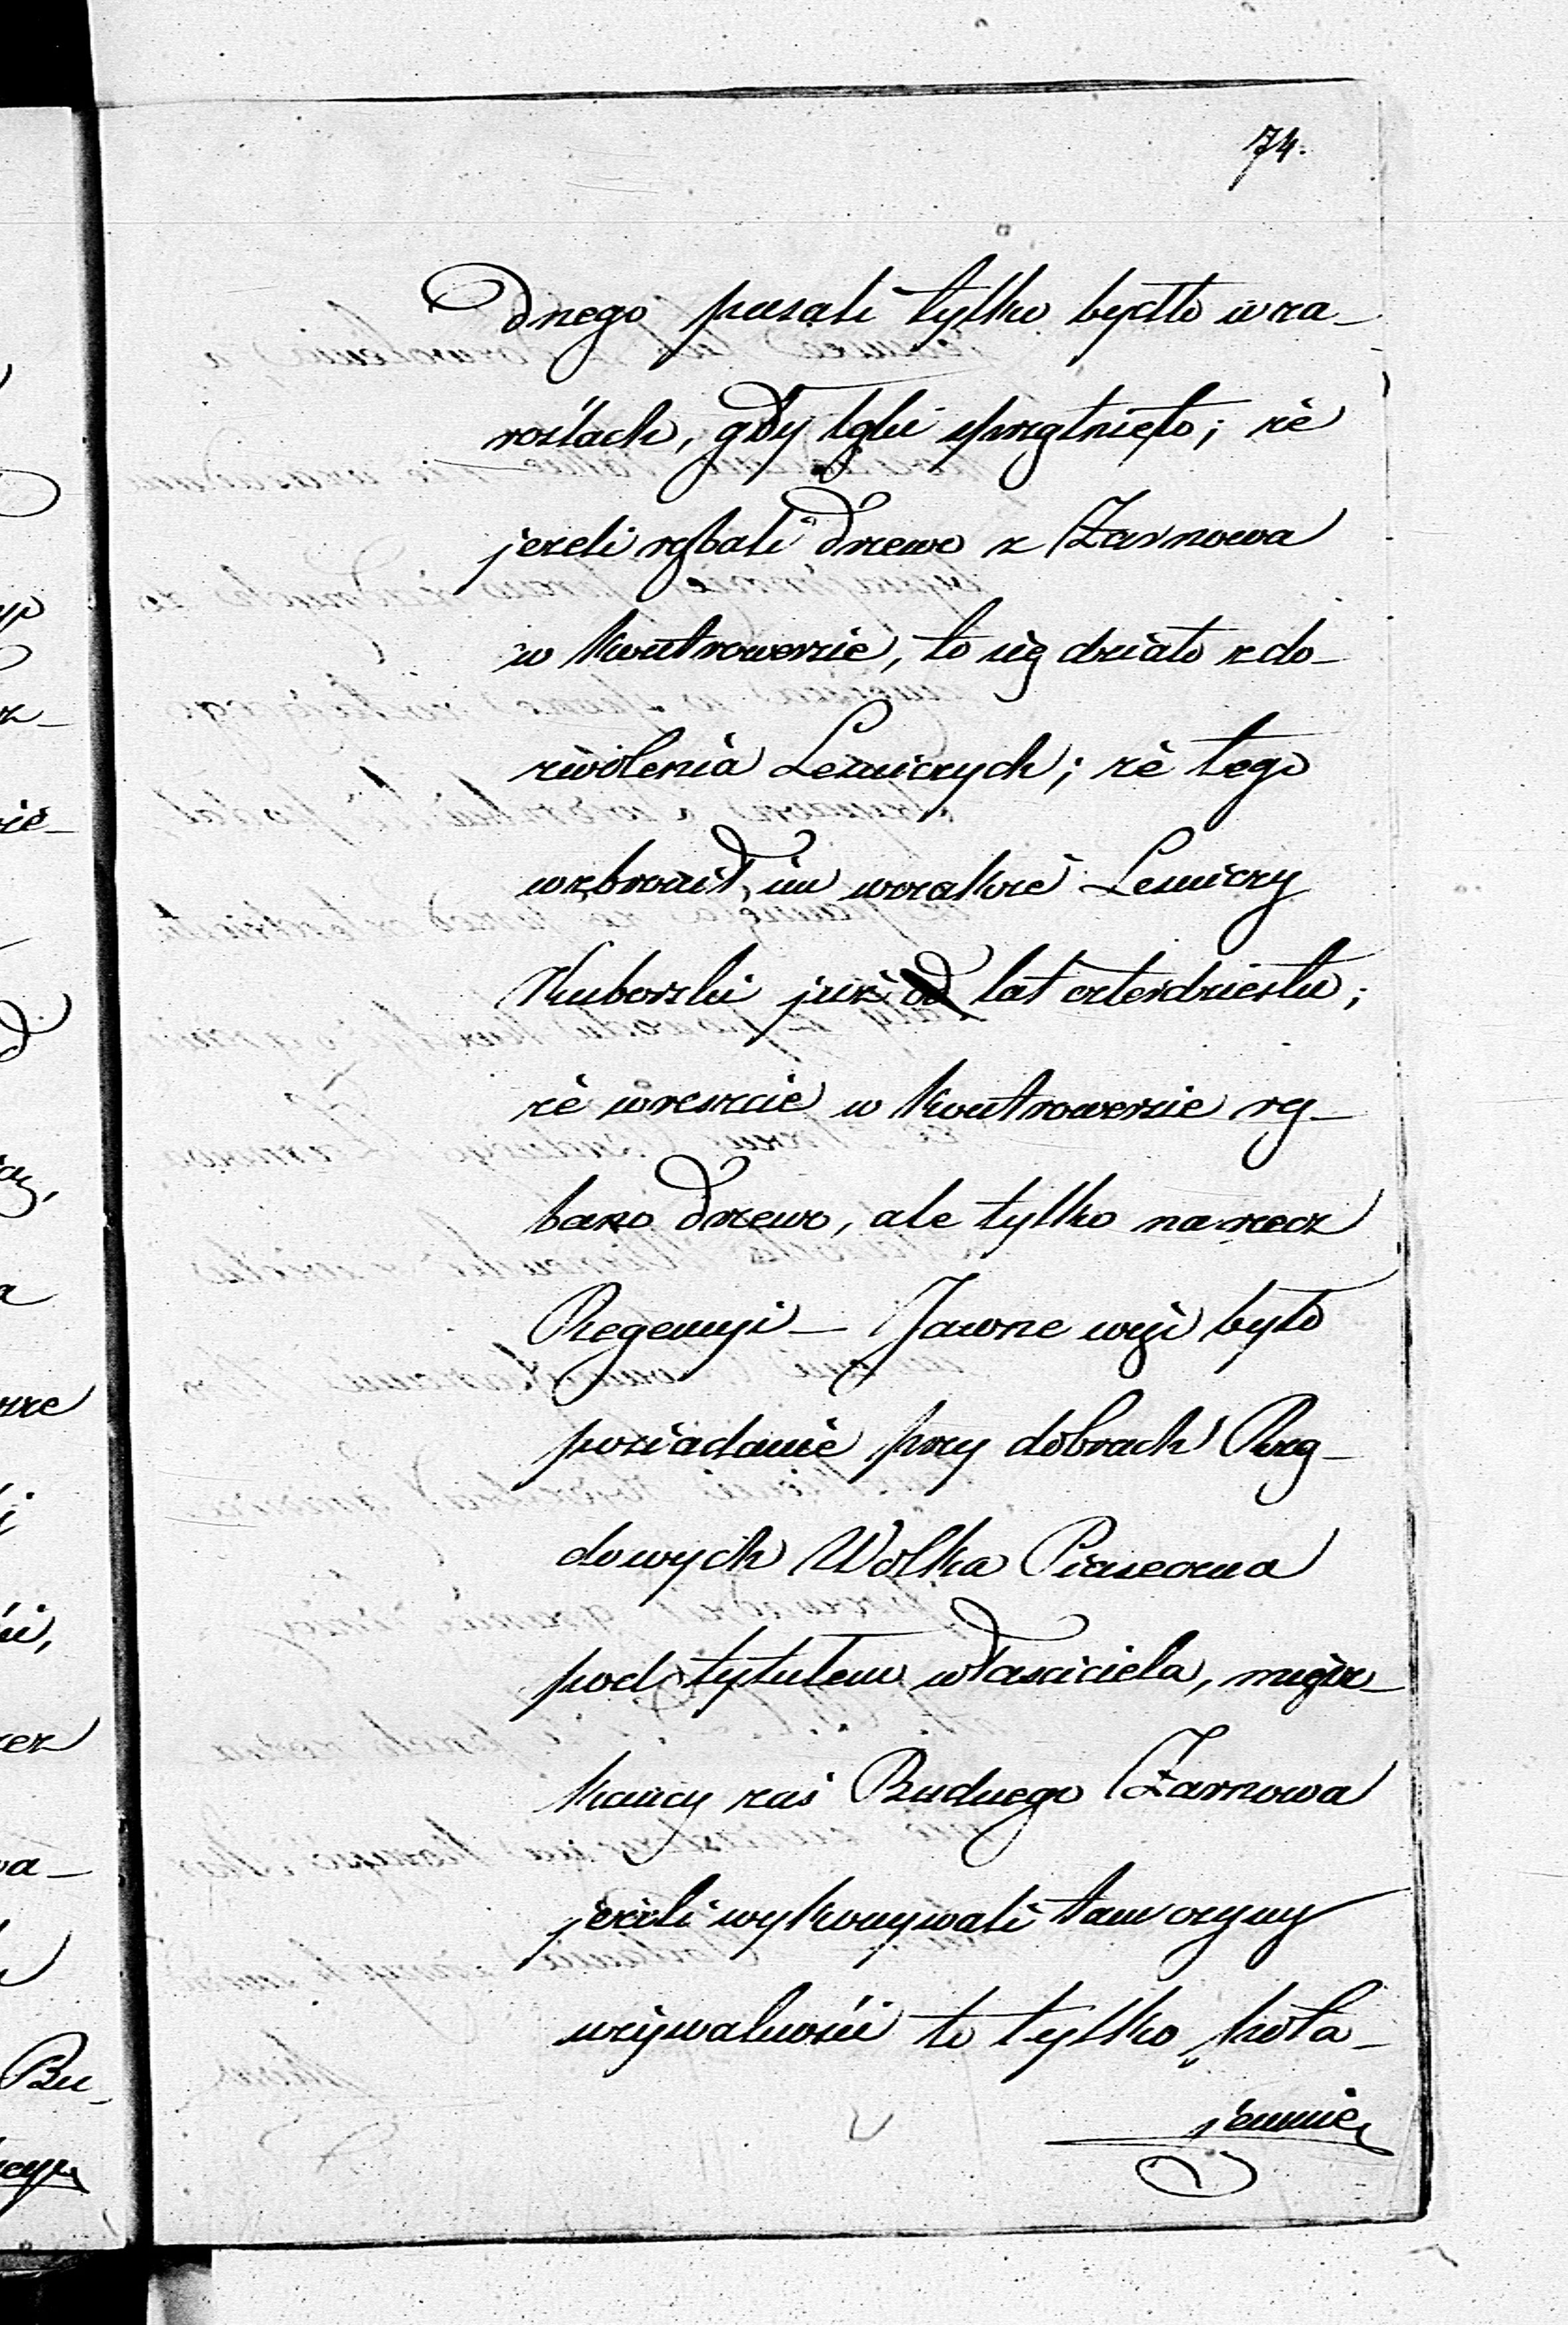 74.
dnego pasali tylko bydło w za-
roślach, gdy łąki sprzątnięto; że
jeżeli rąbali drzewo z Żarnowa
w kontrowersie, to się działo z do-
zwolenia Leśniczych; że tego
wzbronił im wszakże Leśniczy
Kuborski już lat czterdziestu;
że wreszcie w kontrowersie rą-
bano drzewo, ale tylko na rzecz
Regencyi – Jawne więc było
posiadanie przy dobrach Rzą-
dowych Wolka Piaseczna
pod tytułem właściciela, miesz-
kańcy zaś Budnego Żarnowa
jeżeli wykonywali tam czyny
używalności to tylko pota-
jemnie